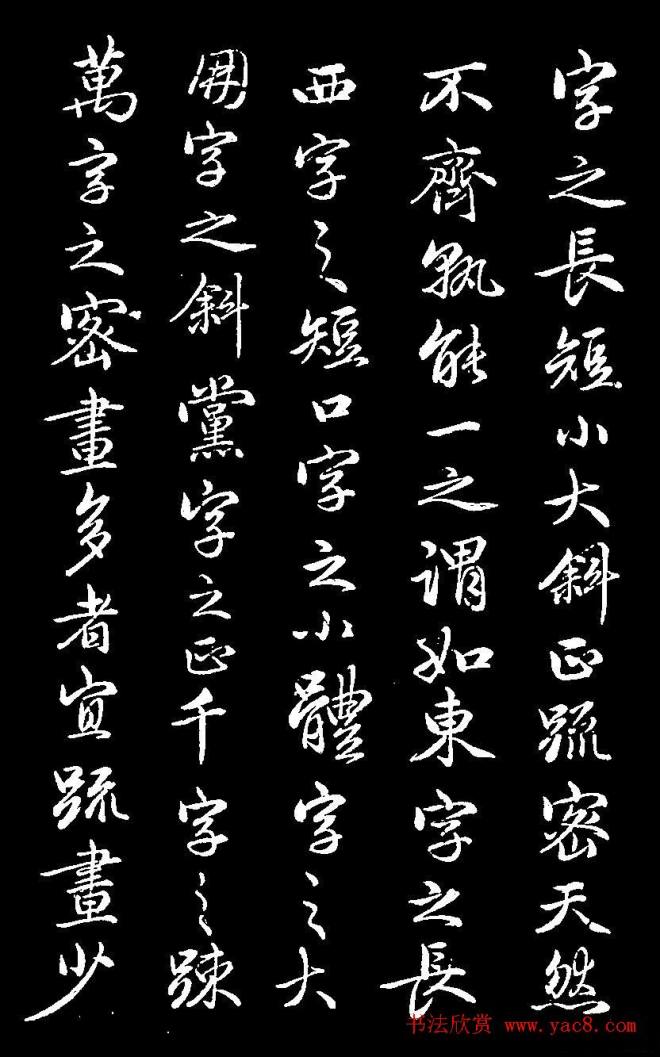 字之長短小大斜正疏密天然
不齊孰能一之謂如東字之長
西字之短口字之小體字之大
朋字之斜黨字之正千字之疎
萬字之密畫多者宜疏畫少
书法欣赏 www.yac8.com